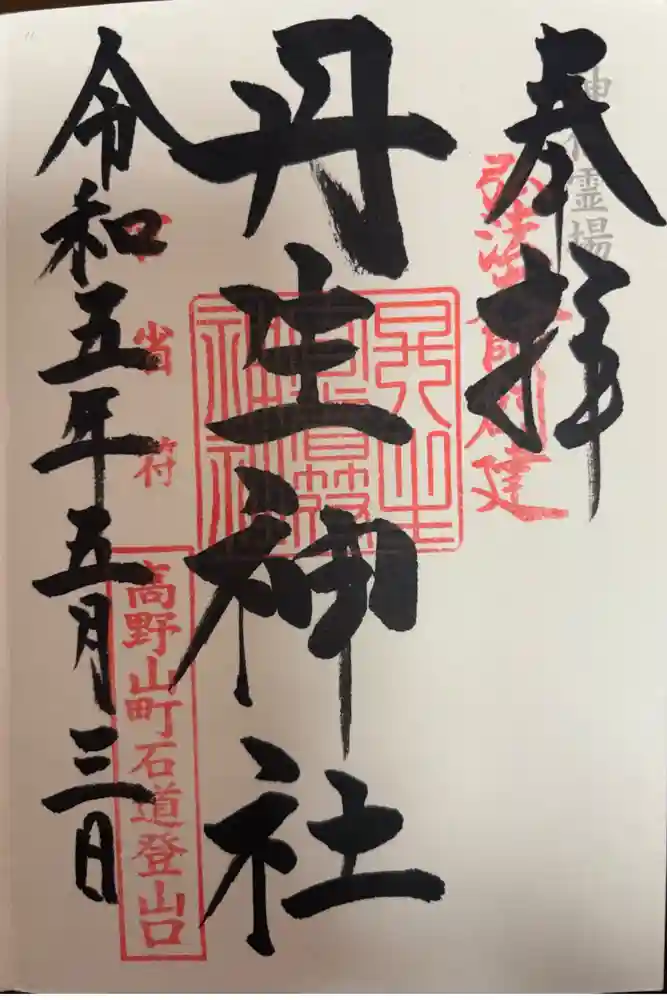 奉拝
霊場
弘法大師創建
丹生神社
令和五年五月三日
省符
高野山町石道登山口